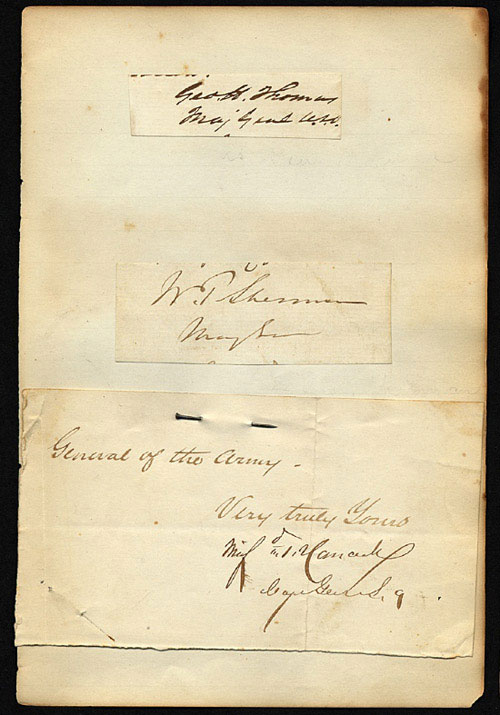 Geo. H. Thomas
Maj Genl U.S.A.
W. T. Sherman
Maj Gen
General of the Army -
Very truly Yours
Hancock
Maj Gen U.S.A.